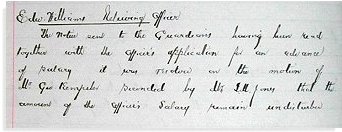 Edw. Williams Relieving Officer
The notice sent to the Guardians having been read
together with the officer's application for an advance
of salary it was resolved on the motion of
Mr Geo Kempster seconded by Mr Jones that the
amount of the officer's Salary remain undisturbed